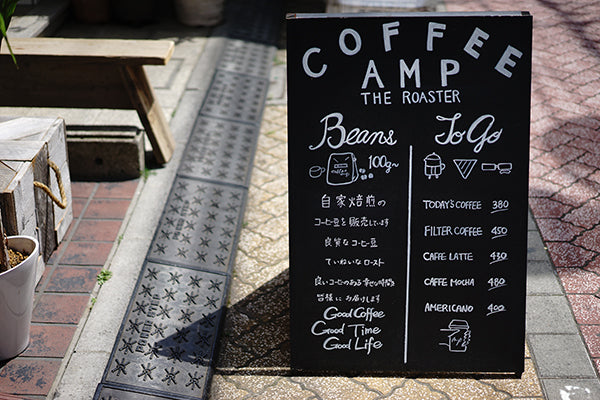 COFFEE
AMP
THE ROASTER
Beans
100g~
自家焙煎の
コーヒー豆を販売しています
良質なコーヒー豆
ていねいなロースト
良いコーヒーのある幸せな時間を
皆様にお届けします
Good Coffee
Good Time
Good Life
To Go
TODAY'S COFFEE 380
FILTER COFFEE 450
CAFFE LATTE 430
CAFFE MOCHA 480
AMERICANO 400